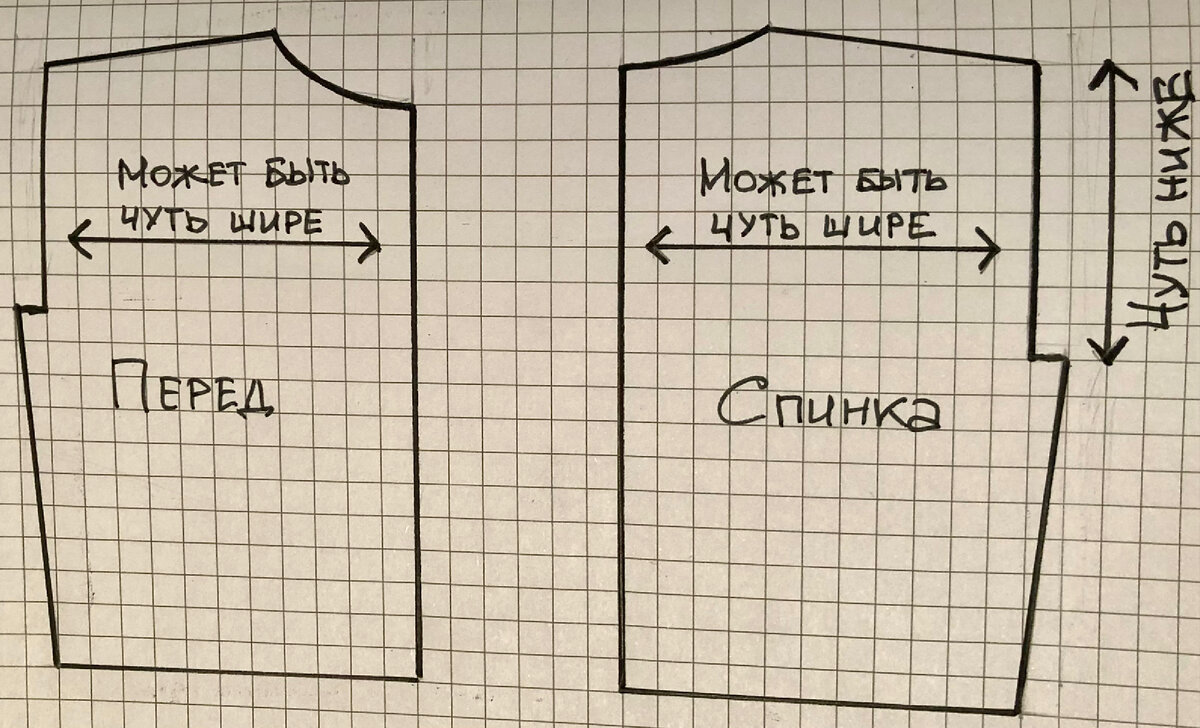 Может быть
чуть шире
Перед
Может быть
чуть шире
Спинка
Чуть ниже